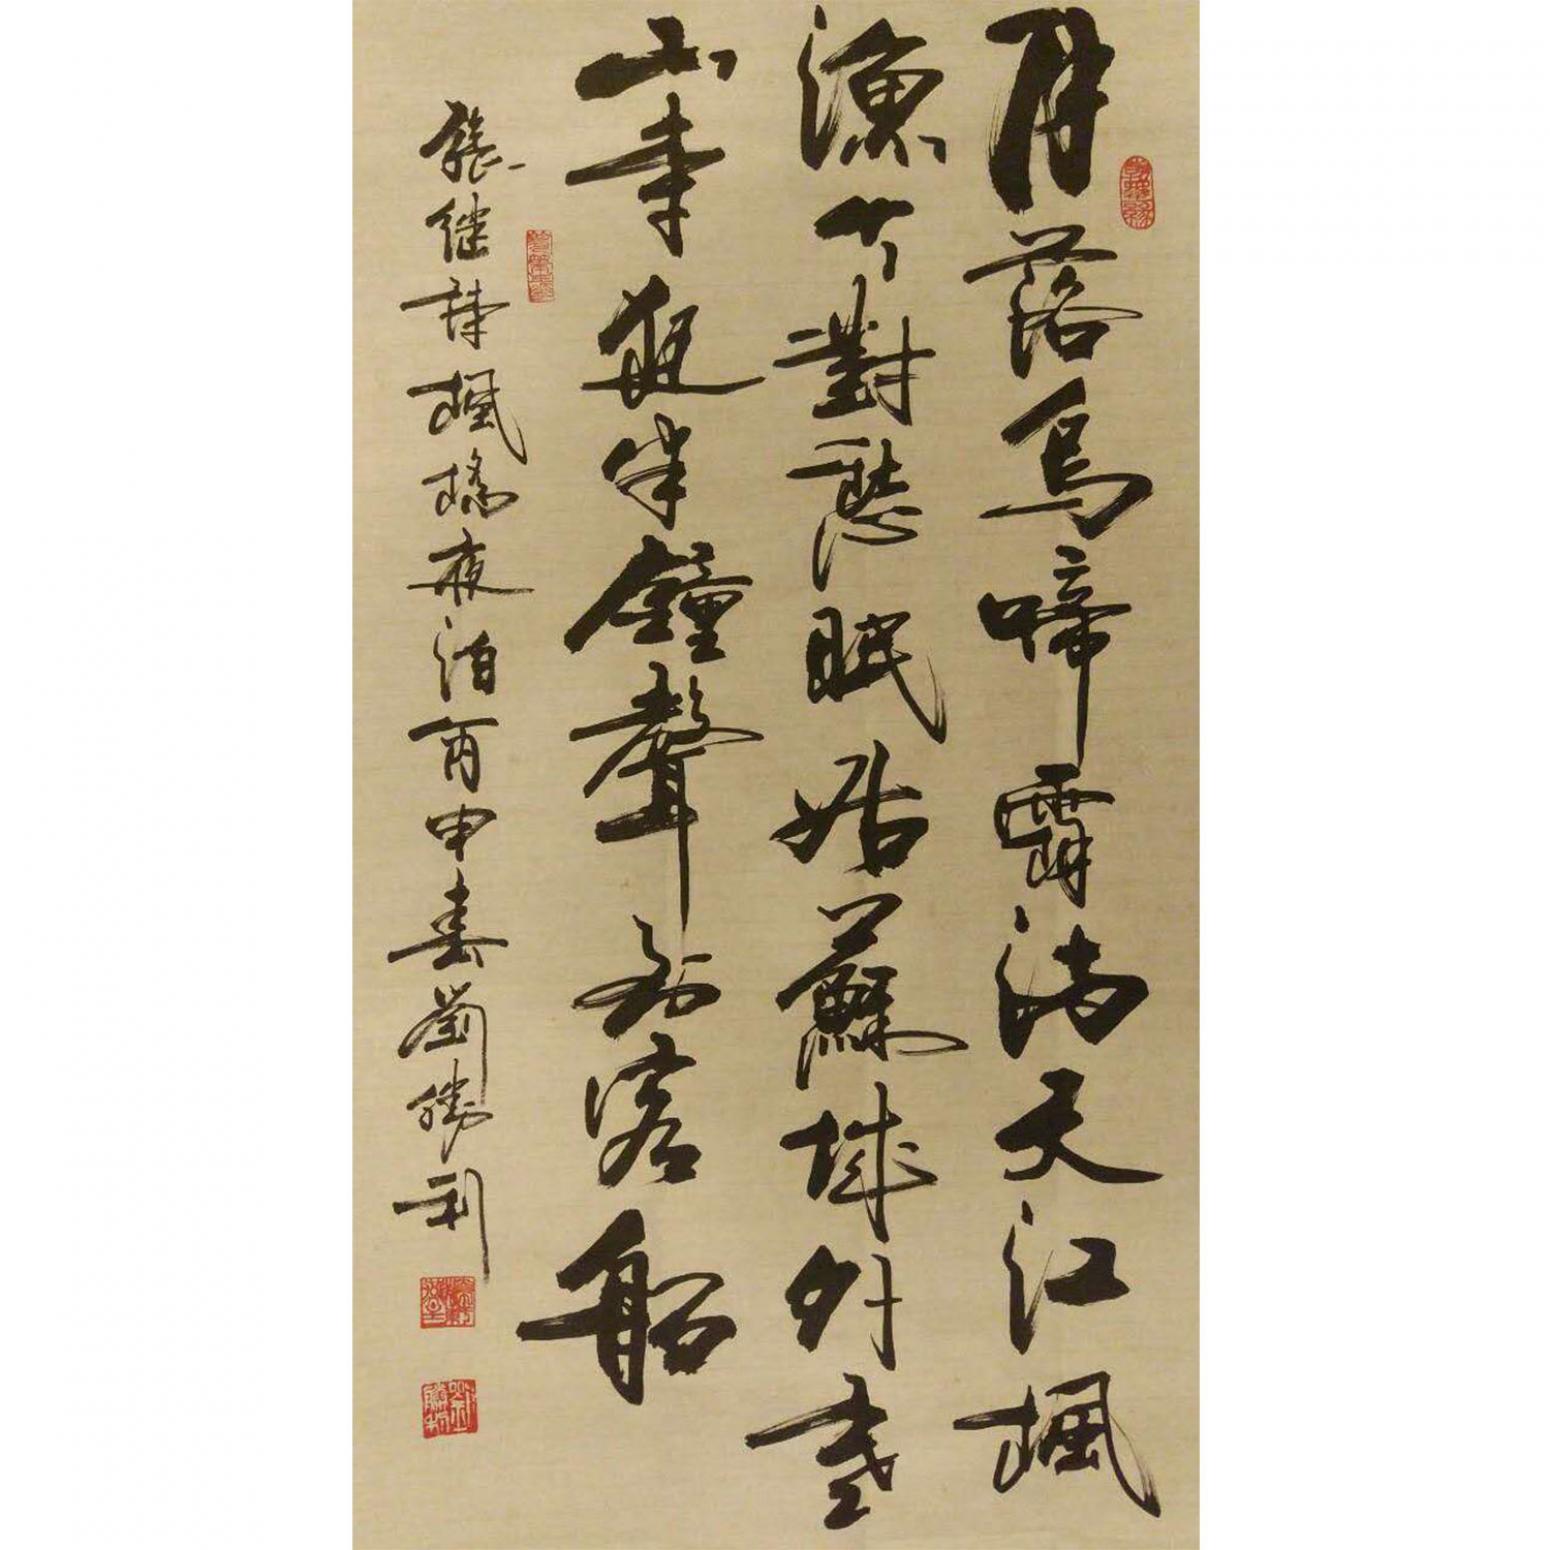 月落烏啼霜滿天江楓
漁火對愁眠姑蘇城外寒
山寺夜半鐘聲到客船
張继詩楓橋夜泊丙申春劉勝利